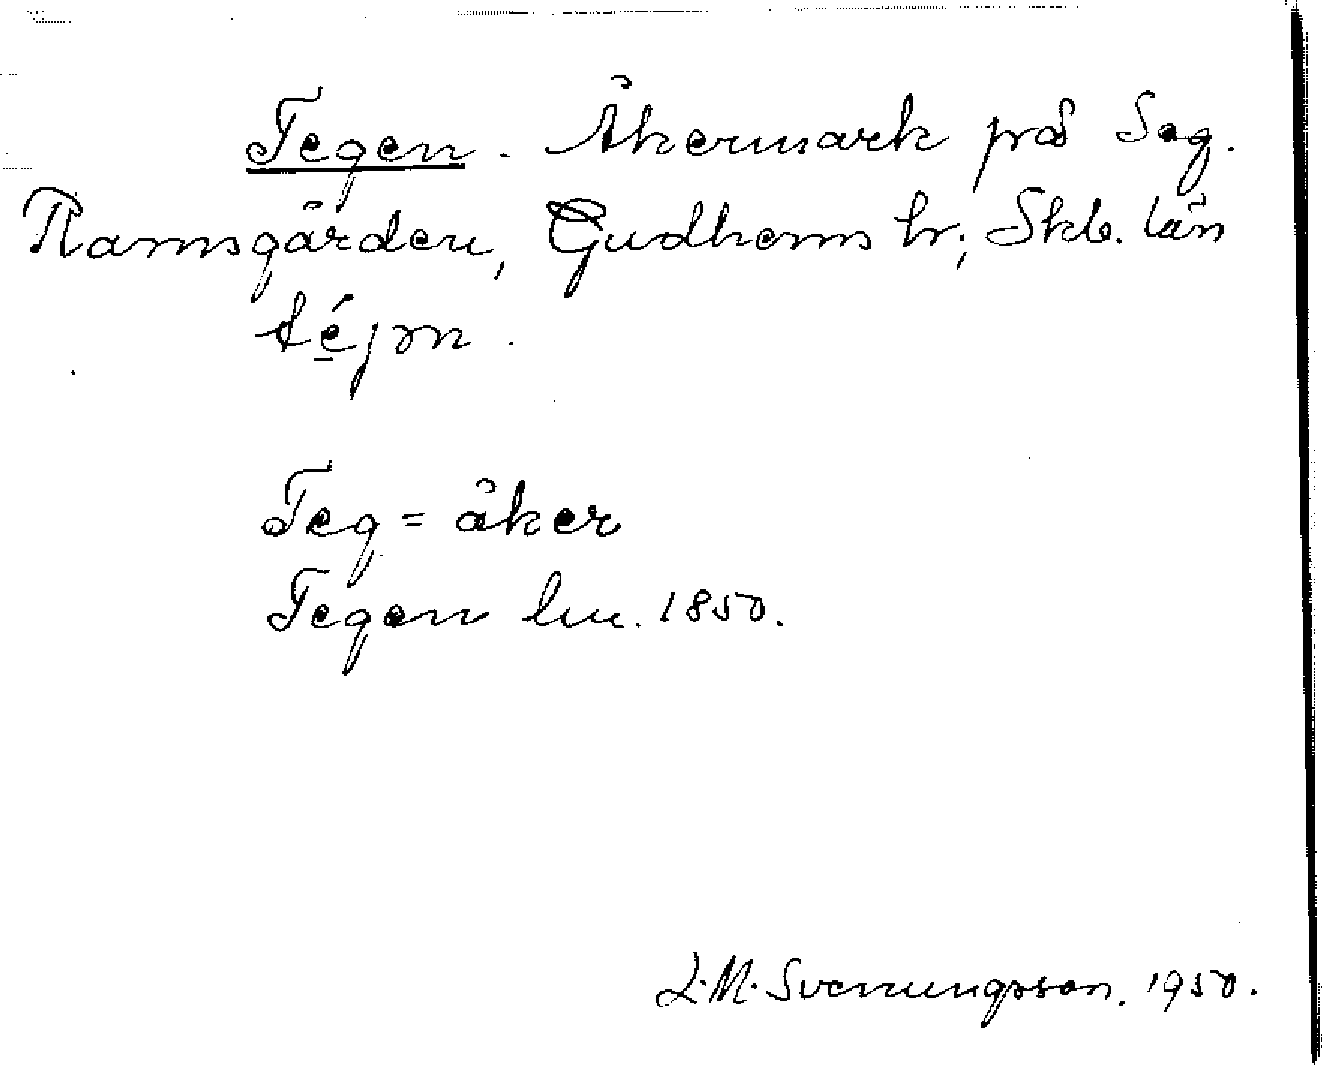 Tegen. Åkermark på Seg.
Ramsgården, Gudhems hr; Skb. län
téjən.
Teg = åker
Tegen lm. 1850.
L.M. Svenungsson. 1950.